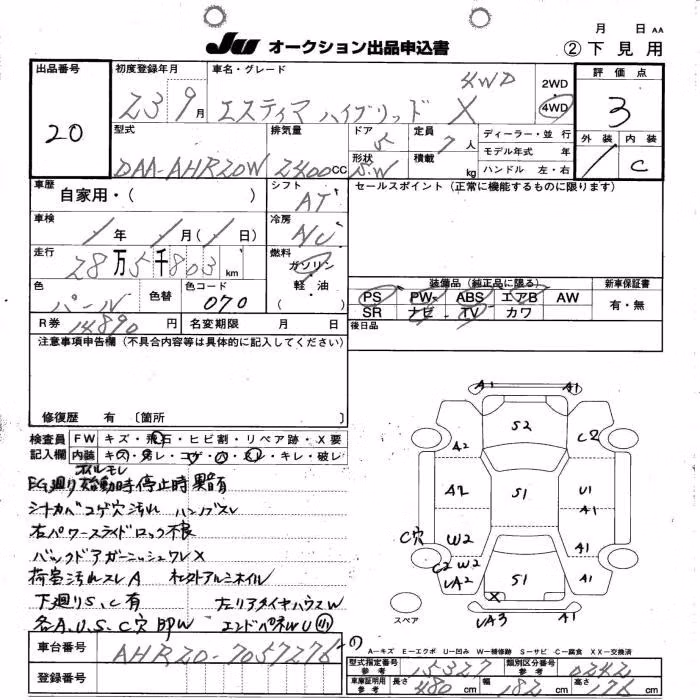 月 日 AA
Ju オークション出品申込書 ② 下見用
出品番号 初度登録年月 車名・グレード 評価点
20 23 9月 エスティマ ハイブリッド X 4WD 2WD 4WD 3
型式 排気量 ドア 定員 ディーラー・並行 外装 内装
DAA-AHR20W 2400CC 5 7人 モデル年式 年 C
形状 積載 ハンドル 左・右
S.W kg
車歴 シフト セールスポイント(正常に機能するものに限ります)
自家用・( ) AT
車検 冷房
/年 /月(/日) AC
走行 燃料
28万5千803km ガソリン・軽油・( )
装備品(純正品に限る) 新車保証書
色 色替 色コード PS PW ABS エアB AW 有・無
パール 070 SR ナビ TV カワ
R券 14890円 名変期限 月 日 後日品
注意事項申告欄(不具合内容等は具体的に記入してください)
修復歴 有 〔箇所 〕
検査員 FW キズ・飛石・ヒビ割・リペア跡・X要
記入欄 内装 キズ・汚レ・コゲ・穴・スレ・キレ・破レ
オイルモレ
EG廻り始動時停止時異音
シートカバーコゲ穴汚れ ハンドルスレ
右パワースライドロック不良
バックドアガーニッシュワレX
荷室汚れスレA 社外アルミホイル
下廻りS、C有 左リアタイヤハウスW
各A.U.S.C穴即W エンドパネルU小
A1 A1
S2
A2 C2
A2 S1 U1
A1
C穴 W2 A1
C2 W2
UA2 S1 A1
X
スペア UA3 A1
A-キズ E-エクボ U-凹み W-補修跡 S-サビ C-腐食 XX-交換済
車台番号 AHR20-7057276 の
型式指定番号 参考 15327 類別区分番号 参考 0242
登録番号
車庫証明用 参考 長さ 480cm 幅 182cm 高さ 176cm